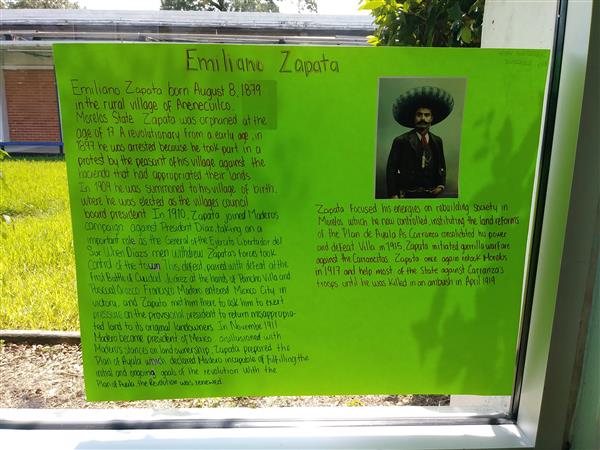 Emiliano Zapata
Emiliano Zapata born August 8, 1879
in the rural village of Anenecuilco.
Morelos State. Zapata was orphaned at the
age of 17. A revolutionary from a early age, in
1897 he was arrested because he took part in a
protest by the peasant of his village against the
hacienda that had appropriated their lands.
In 1909 he was summoned to his village of birth,
where he was elected as the villages council
board president. In 1910, Zapata joined Maderos
campaign against President Diaz, taking on a
important role as the General of the Ejercito Libertador del
Sur. When Diazs men withdrew Zapata's forces took
control of the town. This defeat, paired with defeat at the
First Battle of Ciudad Juarez at the hands of Pancho Villa and
Pascual Orozco. Francisco Madero entered Mexico City in
victory, and Zapata met him there to ask him to exert
pressure on the provisional president to return misappropria-
ted land to its original landowners. In November 1911
Madero became president of Mexico, disillusioned with
Madero's stances on land ownership, Zapata prepared the
Plan of Ayala which declared Madero incapable of fulfilling the
initial and ongoing goals of the revolution. With the
Plan of Ayala, the Revolution was renewed.
Zapata focused his energies on rebuilding society in
Morelos which he now controlled, instituting the land reforms
of the Plan de Ayula. As Carranza consolidated his power
and defeat Villa in 1915, Zapata initiated guerrilla warfare
against the Carrancistas. Zapata once again retook Morelos
in 1917 and help most of the State against Carranza's
troops until he was killed in an ambush in April 1919